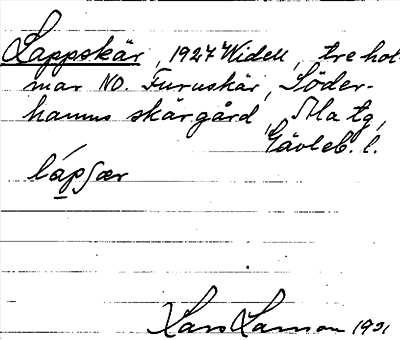 Lappskär, 1927 Widell, tre hol-
mar NO. Furuskär, Söder-
hamns skärgård, Ma tg,
Gävleb. l.
lápʃær
Lars Larsson 1931